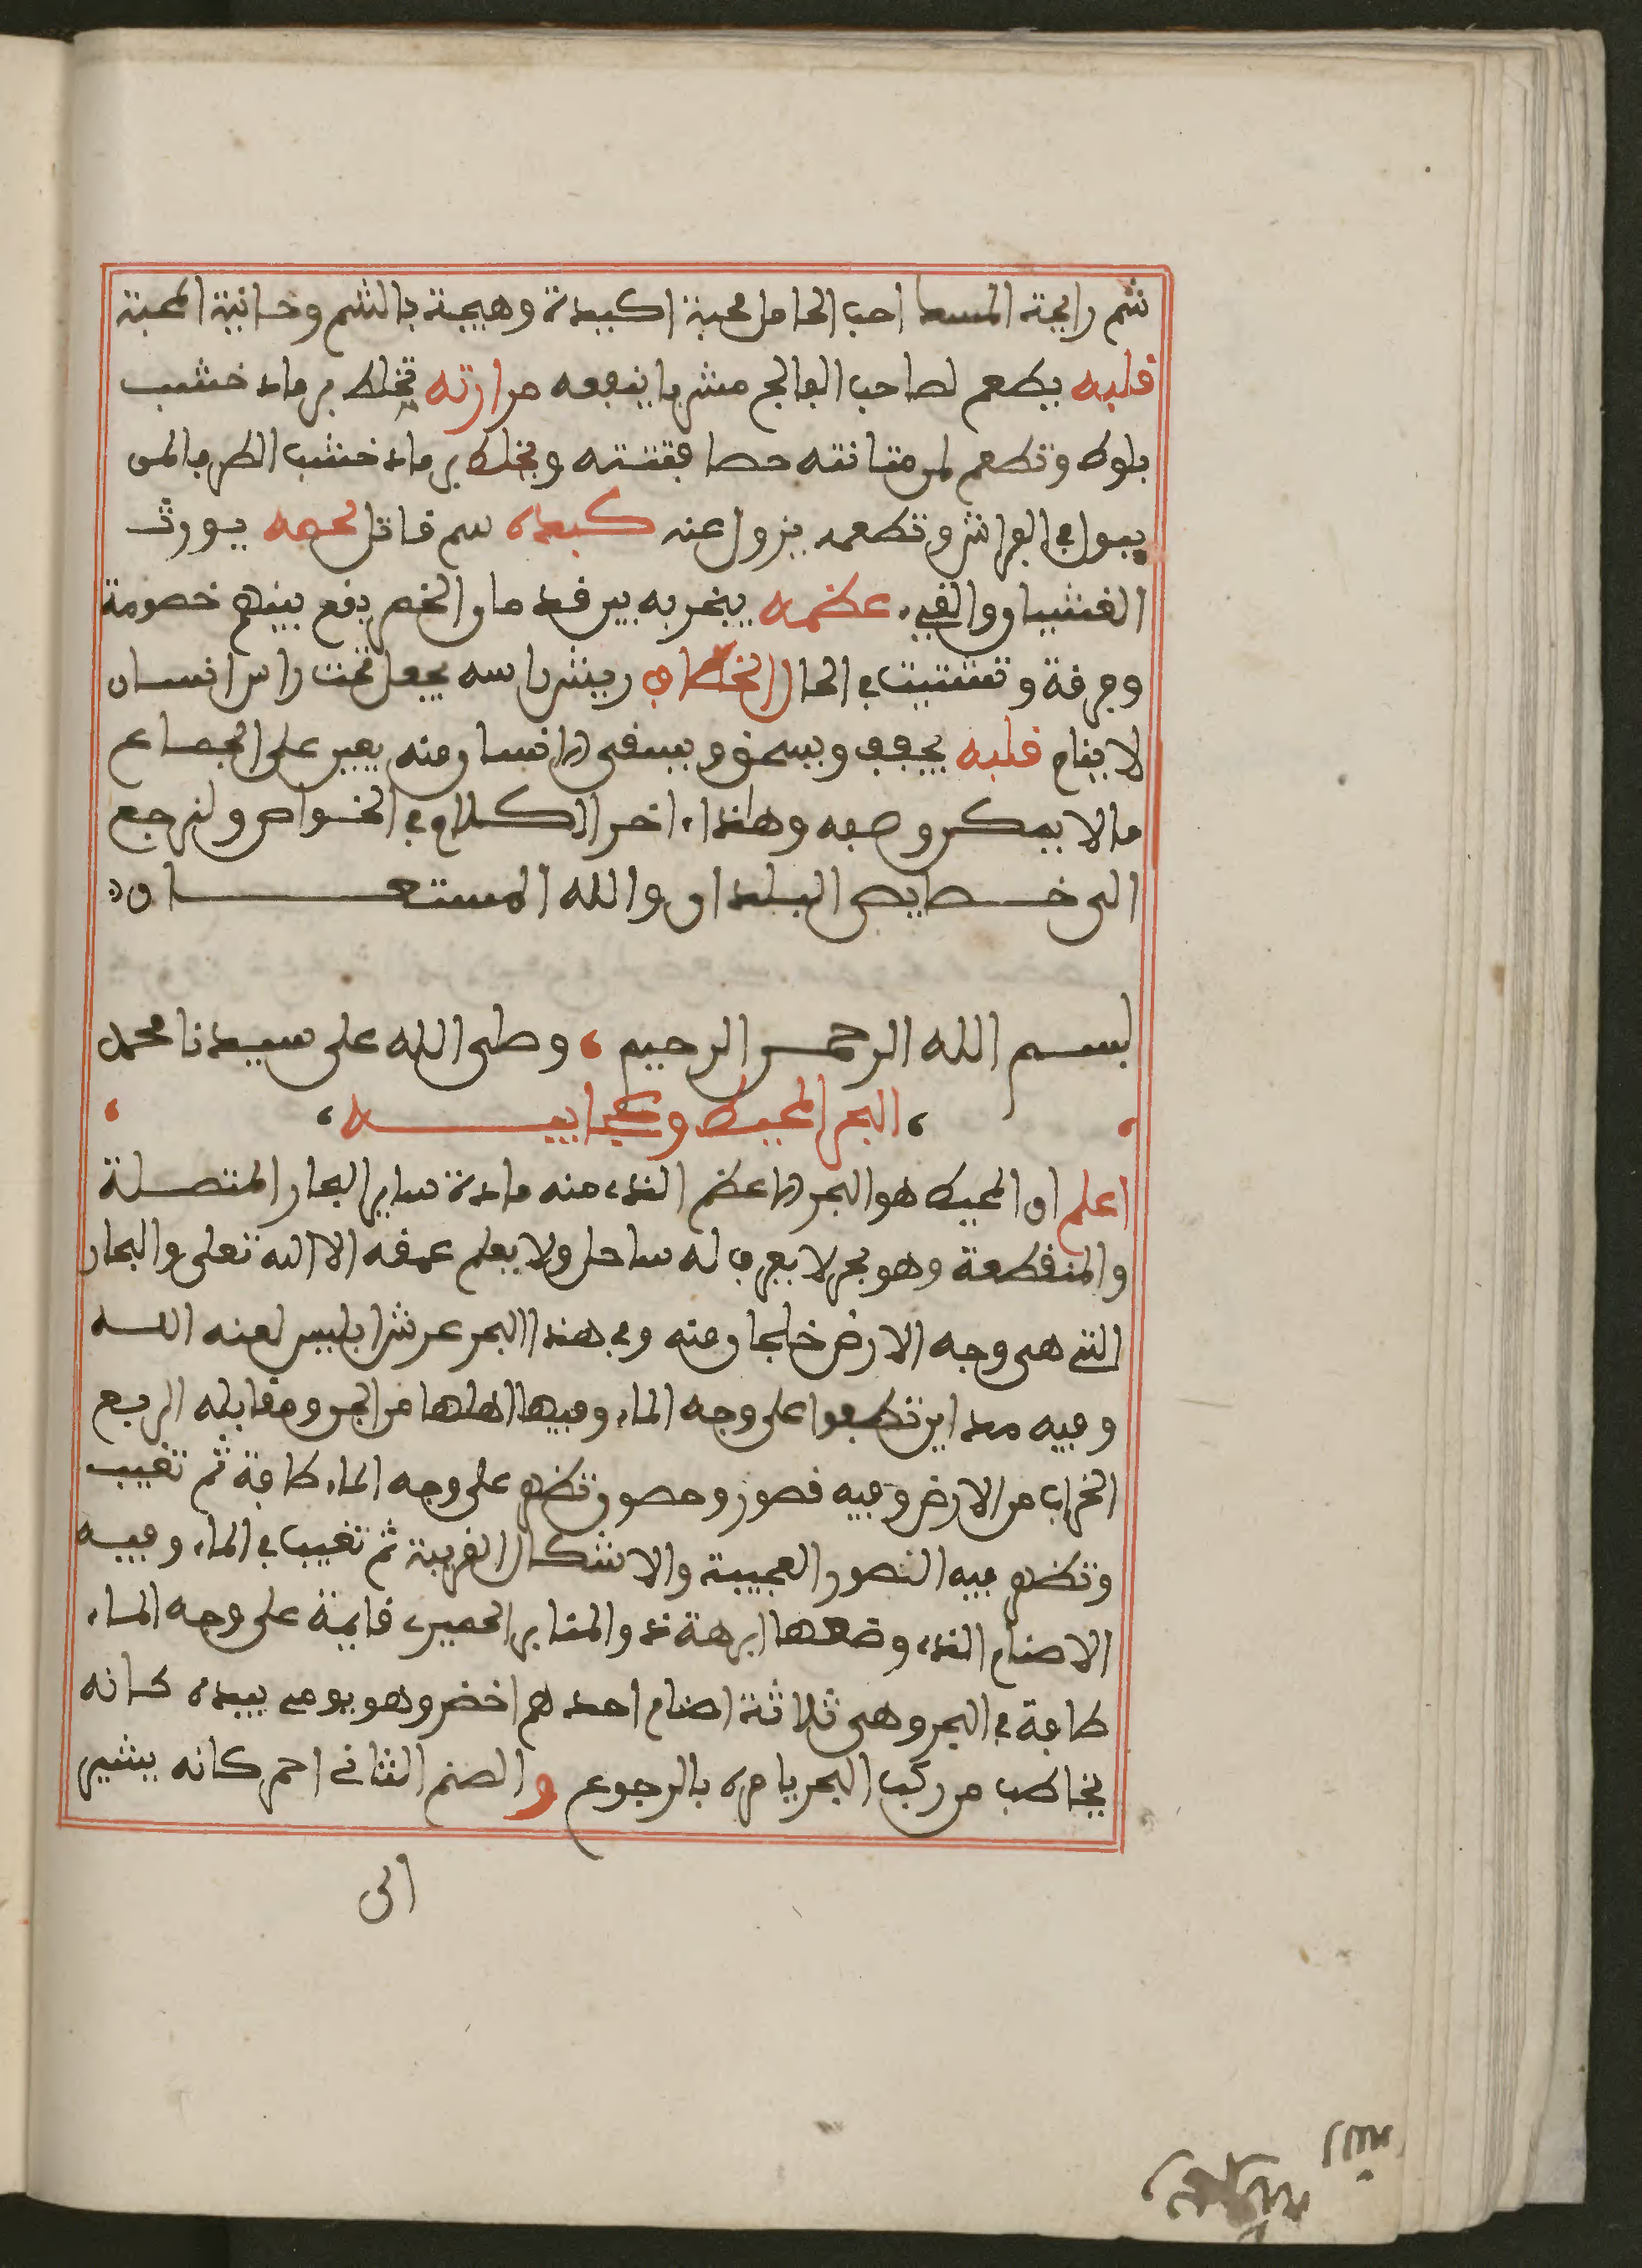 شم رايحة المسك احب الحامل محبة اكيدة وهيجة بالشم وحانية المحبة
قلبه يطعم لصاحب الفالج مشويا ينفعه مرارته تخلط برماد خشب
بلوط وتطعم لمن مثانته حصا فتفتته ويخلط برماد خشب الطرفا لمن
يبول في الفراش وتطعمه يزول عنه كبده سم قاتل لحمه يورث
الغشيان والقيء عظمه يبخر به بين قدمان الخصم يقع بينهم خصومة
وفرقة وتشتيت في الحال الخطاف ريش راسه يجعل تحت راس انسان
لا ينام قلبه يجفف ويسحق ويسقى لانسان منه يعين على الجماع
ما لا يمكن وصفه وهاذا اخر الكلام في الخواص ولنرجع
الى خصايص البلدان والله المستعان
بسم الله الرحمن الرحيم وصلى الله على سيدنا محمد
البحر المحيط وعجايبه
اعلم ان المحيط هو البحر الاعظم الذي منه مادة ساير البحار المتصلة
والمنقطعة وهو بحر لا يعرف له ساحل ولا يعلم عمقه الا الله تعلى والبحار
التي هي وجه الارض خلجان منه وفي هذا البحر عرش ابليس لعنه الله
وفيه مداين تطفوا على وجه الماء وفيها اهلها من الجن ومقابله الربع
الخراب من الارض وفيه قصور وحصون تظهر على وجه الماء طافية ثم تغيب
وتظهر فيه الصور العجيبة والاشكال الغريبة ثم تغيب في الماء وفيه
الاصنام الذي وضعها ابرهة ذو المنابر الحميري قايمة على وجه الماء
طافية في البحر وهي ثلاثة اصنام احدهم اخضر وهو يومي بيده كانه
يخاطب من ركب البحر يامره بالرجوع والصنم الثاني احمر كانه يشير
الى